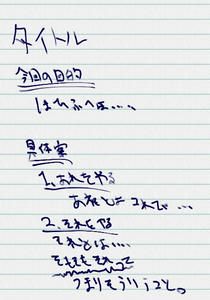 タイトル
今回の目的
はひふへほ....
具体案
1. あれをやる
あれとこれで...
2. それをやる
それとは...
それもそれって
つまりそういうこと。